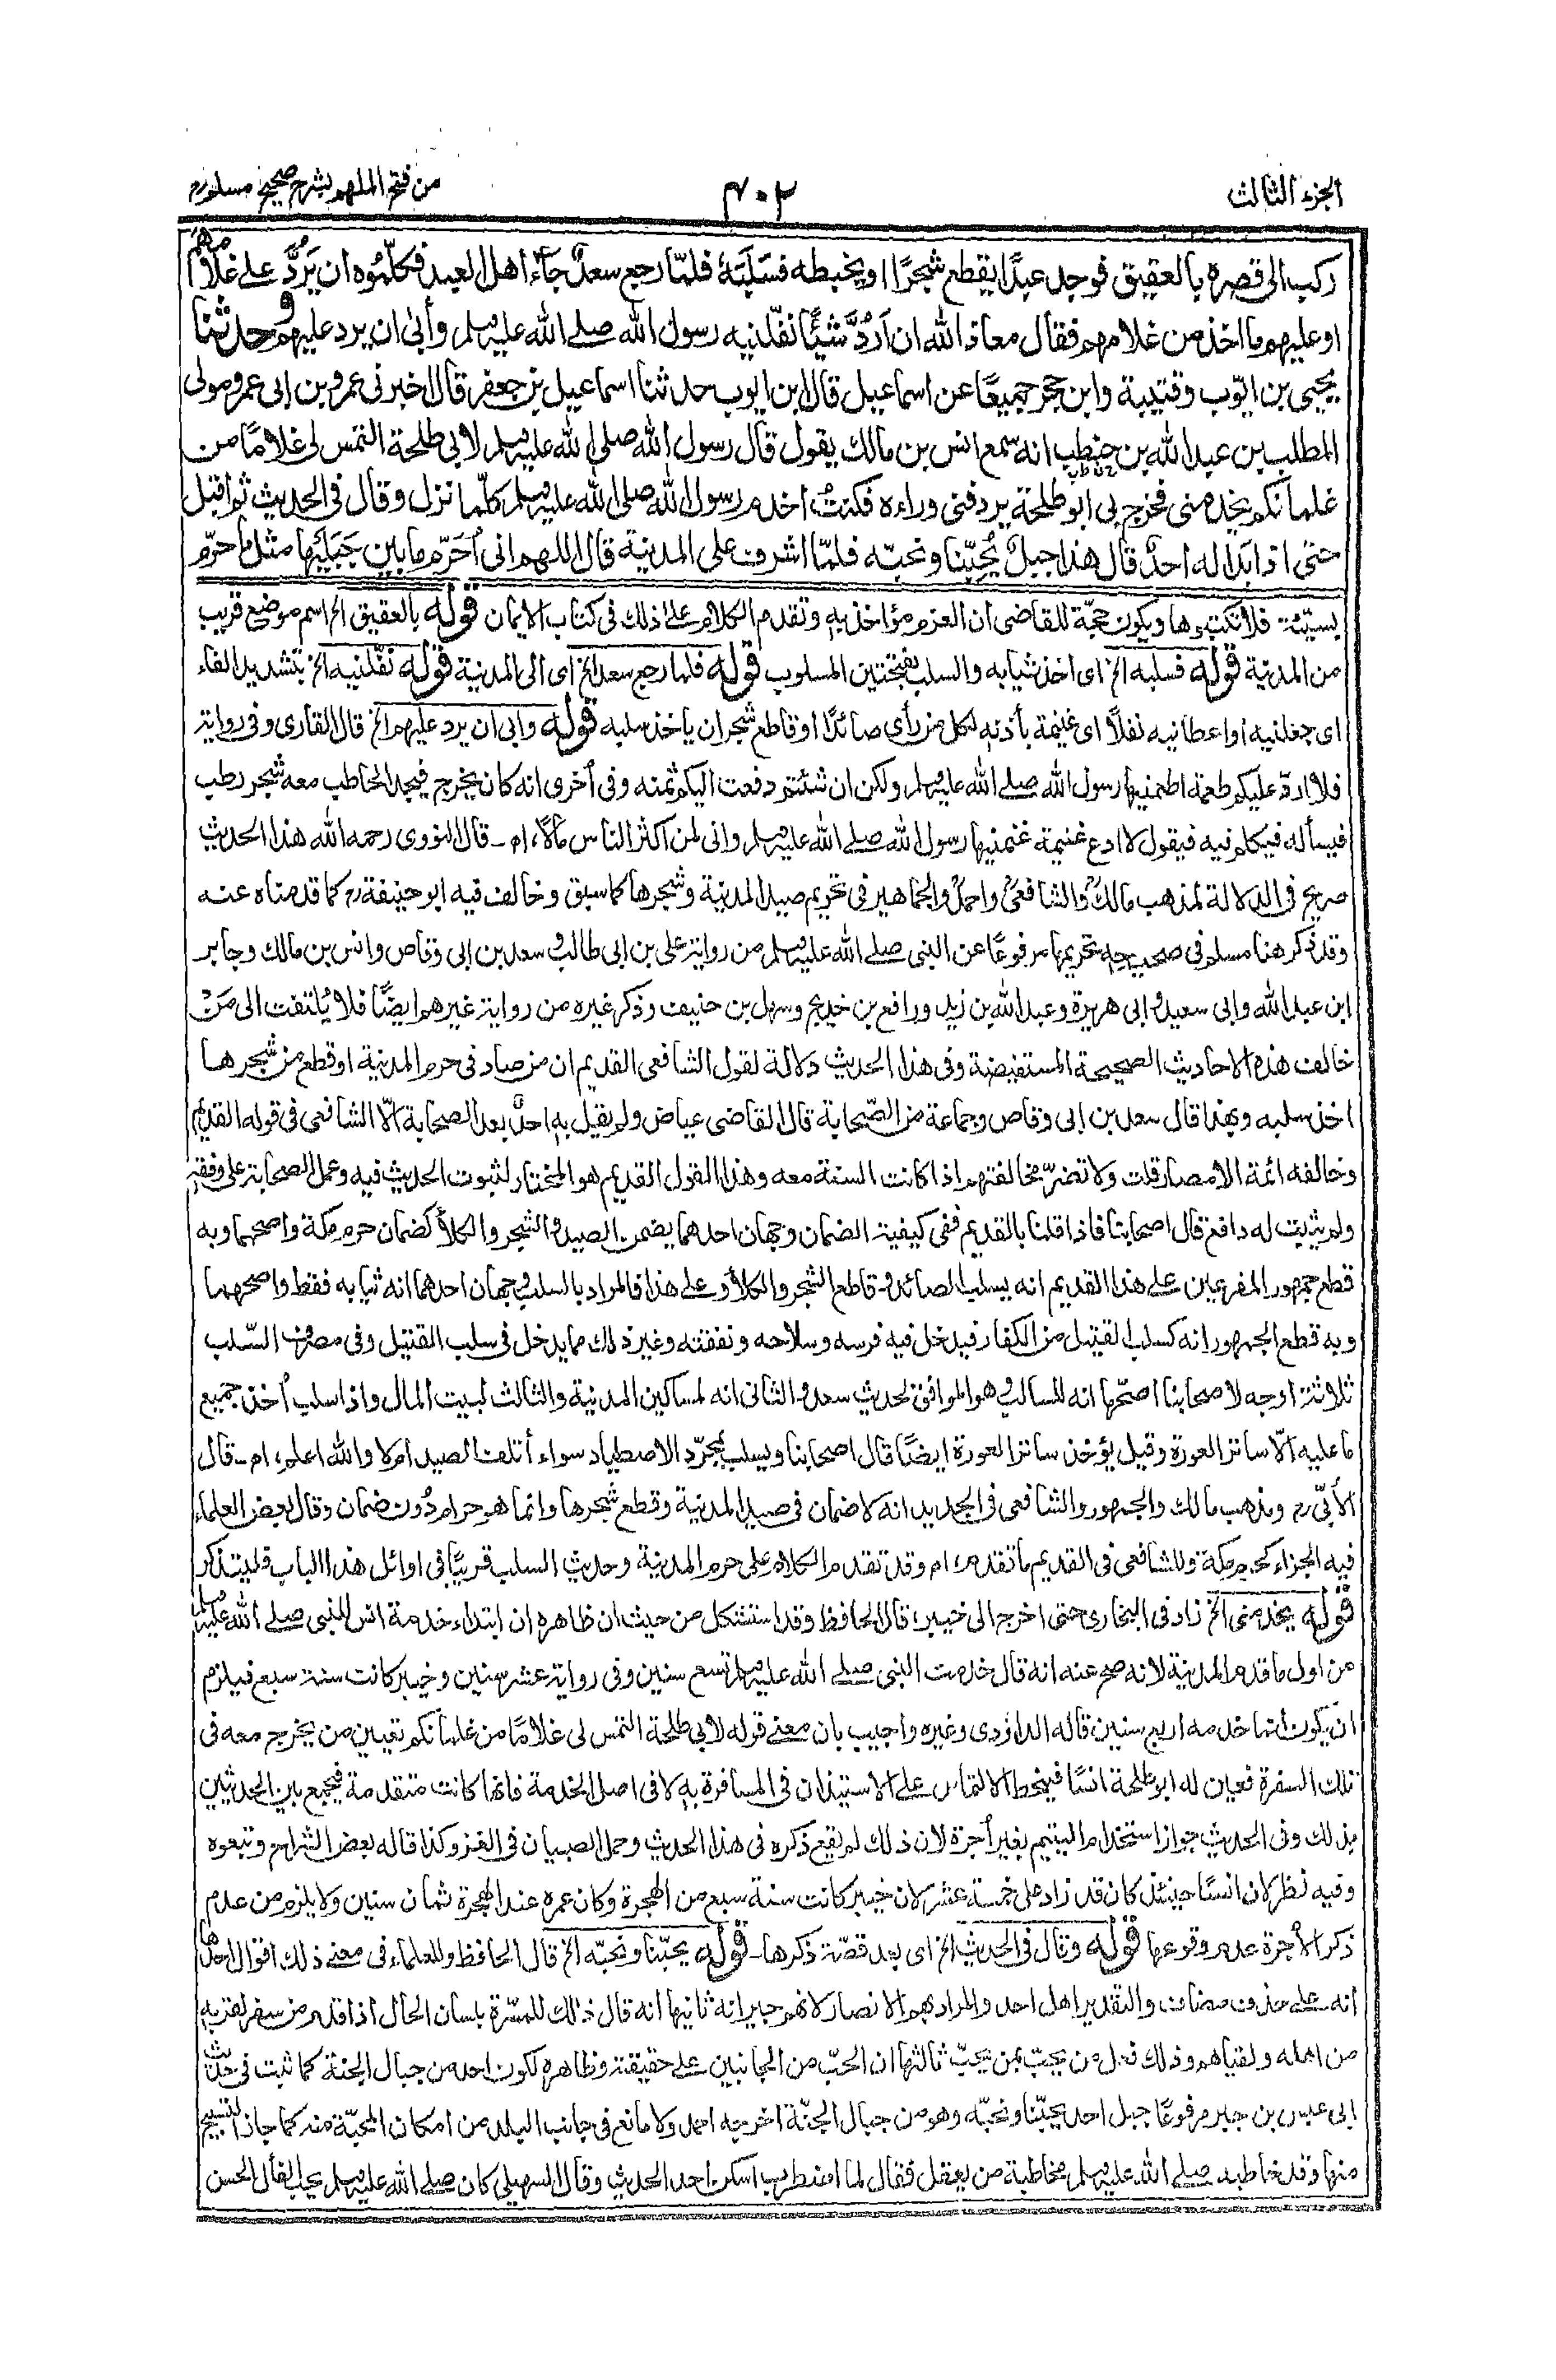 الجزء الثالث
٤٠٢
من فتح الملهم بشرح صحيح مسلم رم
ركب الى قصره بالعقيق فوجد عبدًا يقطع شجرًا او يخبطه فسَلَبَهٗ فلمّا رجع سعدٌ جاءه اهل العبد فكلّموه ان يَرُدَّ على غلامهم
او عليهم ما اخذ من غلامهم فقال معاذ الله ان اَرُدَّ شيئًا نفّلنيه رسول الله صلے الله عليه وسلم وأبىٰ ان يرد عليهم وحدثنا
يحيى بن ايّوب وقتيبة وابن حجر جميعًا عن اسماعيل قال ابن ايوب حدثنا اسماعيل بن جعفر قال اخبرنى عمرو بن ابى عمرو مولى
المطلب بن عبد الله بن حنطب انه سمع انس بن مالك يقول قال رسول الله صلى الله عليه وسلم لابى طلحة التمس لى غلامًا من
غلمانكم يخدمنى فخرج بى ابو طلحة يردفنى وراءه فكنتُ اخدم رسول الله صلى الله عليه وسلم كلّما نزل وقال فى الحديث ثم اقبل
حتى اذا بدا له احدٌ قال هذا جبلٌ يُحِبّنا ونحبّه فلمّا اشرف على المدينة قال اللهم انى اُحَرّم ما بين جَبَلَيْها مثل ما حرّم
بسيّئة فلا تكتبوها ويكون حجّة للقاضى ان العزم مؤاخذ به وتقدم الكلام على ذلك فى كتاب الايمان قوله بالعقيق الخ اسم موضع قريب
من المدينة قوله فسلبه الخ اى اخذ ثيابه والسلب بفتحتين المسلوب قوله فلما رجع سعد الخ اى الى المدينة قوله نفّلنيه الخ بتشديد الفاء
اى جعلنيه او اعطانيه نفلًا اى غنيمة بأذنه لكل من رأى صائدًا او قاطع شجر ان ياخذ سلبه قوله وابى ان يرد عليهم الخ قال القارى وفى رواية
فلا ارد عليكم طعمة اطعمنيها رسول الله صلے الله عليه وسلم ولكن ان شئتم دفعت اليكم ثمنه وفى اخرى انه كان يخرج فيجد الحاطب معه شجر رطب
فيسأله فيكلم فيه فيقول لا ادع غنيمة غنمنيها رسول الله صلے الله عليه وسلم وانى لمن اكثر الناس مالًا، اھ۔ قال النووى رحمه الله هذا الحديث
صريح فى الدلالة لمذهب مالكؒ والشافعىؒ واحمدؒ والجماهير فى تحريم صيد المدينة وشجرها كما سبق وخالف فيه ابو حنيفة رم كما قدمناه عنه
وقد ذكر هنا مسلم فى صحيحه تحريمها مرفوعًا عن النبى صلے الله عليه وسلم من رواية على بن ابى طالب وسعد بن ابى وقاص وانس بن مالك وجابر
ابن عبد الله وابى سعيد وابى هريرة وعبد الله بن زيد ورافع بن خديج وسهل بن حنيف وذكر غيره من رواية غيرهم ايضًا فلا يُلتفت الى مَنْ
خالف هذه الاحاديث الصحيحة المستفيضة وفى هذا الحديث دلالة لقول الشافعى القديم ان من صاد فى حرم المدينة او قطع من شجرها
اخذ سلبه وبهذا قال سعد بن ابى وقاص وجماعة من الصّحابة قال القاضى عياض ولم يقل به احدٌ بعد الصحابة الّا الشافعى فى قوله القديم
وخالفه ائمة الامصار قلت ولا تضرّ مخالفتهم اذا كانت السنة معه وهذا القول القديم هو المختار لثبوت الحديث فيه وعمل الصحابة على وفقه
ولم يثبت له دافع قال اصحابنا فاذا قلنا بالقديم ففى كيفية الضمان وجهان احدهما يضمن الصيد والشجر والكلأ كضمان حرم مكة واصحهما وبه
قطع جمهور المفرعين على هذا القديم انه يسلب الصائد وقاطع الشجر والكلأ وعلى هذا فالمراد بالسلب وجهان احدهما انه ثيابه فقط واصحهما
وبه قطع الجمهور انه كسلب القتيل من الكفار فيدخل فيه فرسه وسلاحه ونفقته وغير ذلك مما يدخل فى سلب القتيل وفى مصرف السّلب
ثلاثة اوجه لاصحابنا اصحّها انه للسالب وهو الموافق لحديث سعد والثانى انه لمساكين المدينة والثالث لبيت المال واذا سلب أخذ جميع
ما عليه الّا ساتر العورة وقيل يؤخذ ساتر العورة ايضًا قال اصحابنا ويسلب بمجرّد الاصطياد سواء أتلف الصيد ام لا والله اعلم، اھ۔ قال
الأبّى رم ومذهب مالك والجمهور والشافعى فى الجديد انه لا ضمان فى صيد المدينة وقطع شجرها وانما هو حرام دُون ضمان وقال بعض العلماء
فيه الجزاء كحرم مكة وللشافعى فى القديم ما تقدم، اھ وقد تقدم الكلام على حرم المدينة، وحديث السلب قريبًا فى اوائل هذا الباب فليتذكر
قوله يخدمنى الخ زاد فى البخارى حتى اخرج الى خيبر، قال الحافظ وقد استشكل من حيث ان ظاهره ان ابتداء خدمة انس للنبى صلے الله عليه وسلم
من اول ما قدم المدينة لانه صح عنه انه قال خدمت النبى صلے الله عليه وسلم تسع سنين وفى رواية عشر سنين وخيبر كانت سنة سبع فيلزم
ان يكون انما خدمه اربع سنين قاله الداؤدى وغيره واجيب بان معنے قوله لابى طلحة التمس لى غلامًا من غلمانكم تعيين من يخرج معه فى
تلك السفرة فعين له ابو طلحة انسًا فيحط الالتماس على الاستيذان فى المسافرة به لا فى اصل الخدمة فانها كانت متقدمة فيجمع بين الحديثين
بذلك وفى الحديث جواز استخدام اليتيم بغير أجرة لان ذلك لم يقع ذكره فى هذا الحديث وحمل الصبيان فى الغزو كذا قاله بعض الشراح وتبعوه
وفيه نظر لان انسًا حينئذ كان قد زاد على خمسة عشر لان خيبر كانت سنة سبع من الهجرة وكان عمره عند الهجرة ثمان سنين ولا يلزم من عدم
ذكر الأجرة عدم وقوعها قوله وقال فى الحديث الخ اى بعد قصّة ذكرها۔ قوله يحبّنا ونحبّه الخ قال الحافظ وللعلماء فى معنے ذلك اقوال احدها
انه على حذف مضاف والتقدير اهل احد والمراد بهم الانصار لانهم جيرانه ثانيها انه قال ذلك للمسّرة بلسان الحال اذا قدم من سفر لقربه
من اهله ولقياهم وذلك فعل من يحبّ بمن يحبّ ثالثها ان الحبّ من الجانبين على حقيقته وظاهره لكون احد من جبال الجنة كما ثبت فى حديث
ابى عبس بن جبر مرفوعًا جبل احد يحبّنا ونحبّه وهو من جبال الجنّة اخرجه احمد ولا مانع فى جانب البلد من امكان المحبّة منه كما جاز التسبيح
منها وقد خاطبه صلے الله عليه وسلم مخاطبة من يعقل فقال لما اضطرب اسكن احد الحديث وقال السهيلى كان صلے الله عليه وسلم يحب الفأل الحسن